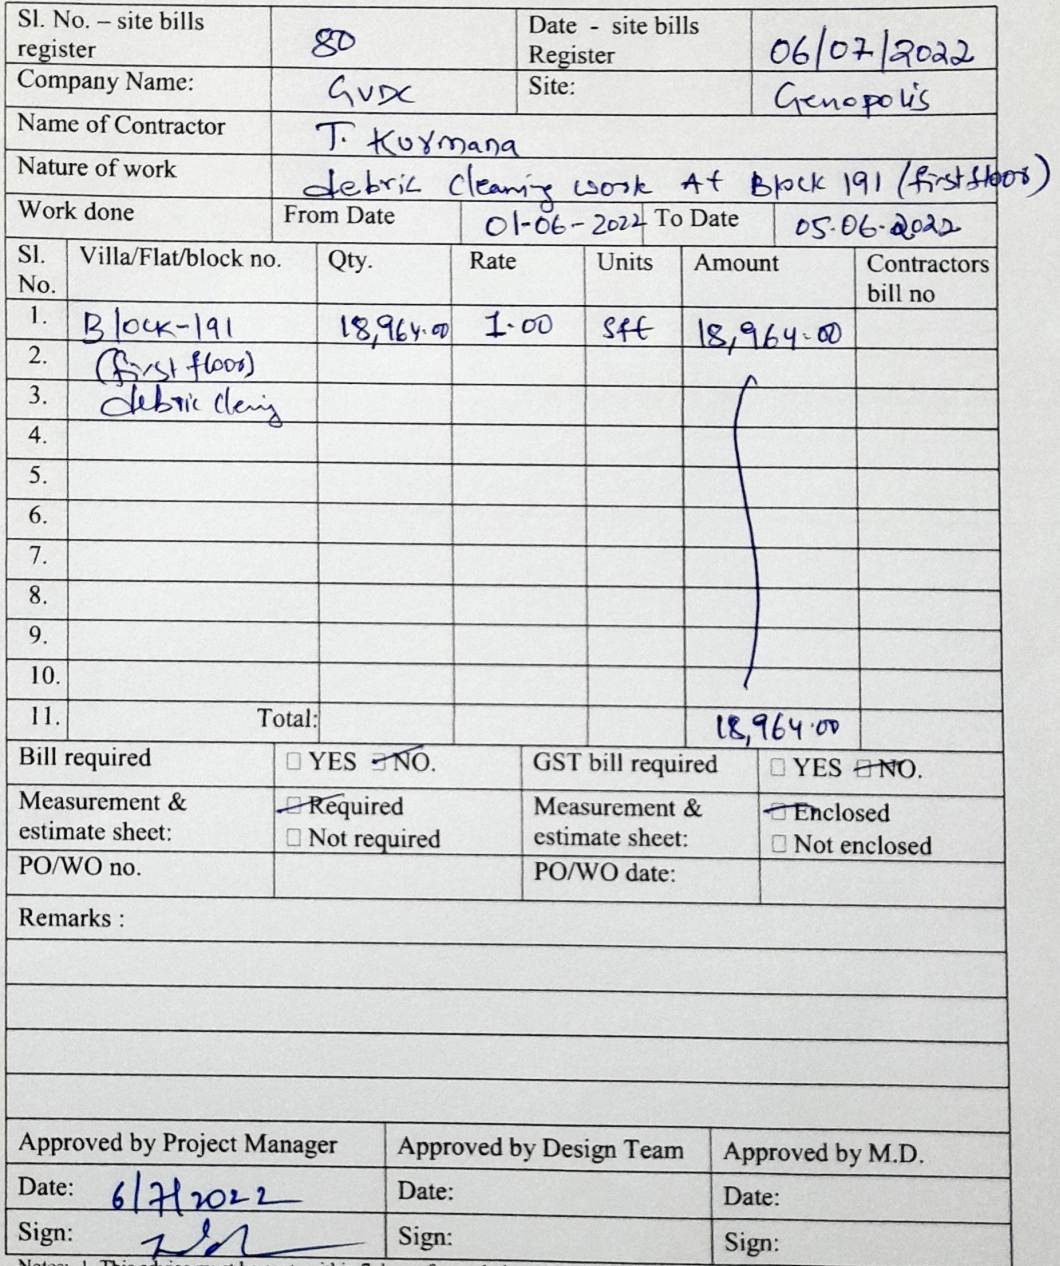 Sl. No. – site bills register 80 Date - site bills Register 06/07/2022
Company Name: GVDC Site: Genopolis
Name of Contractor T. Kurmana
Nature of work debric cleaning work At Block 191 (first floor)
Work done From Date 01-06-2022 To Date 05.06.2022
Sl. No. Villa/Flat/block no. Qty. Rate Units Amount Contractors bill no
1. Block-191 18,964.00 1.00 sft 18,964.00
2. (first floor)
3. debric cleing
4.
5.
6.
7.
8.
9.
10.
11. Total: 18,964.00
Bill required □ YES □ NO. GST bill required □ YES □ NO.
Measurement & estimate sheet: □ Required □ Not required Measurement & estimate sheet: □ Enclosed □ Not enclosed
PO/WO no. PO/WO date:
Remarks :
Approved by Project Manager Approved by Design Team Approved by M.D.
Date: 6/7/2022 Date: Date:
Sign: Sign: Sign: